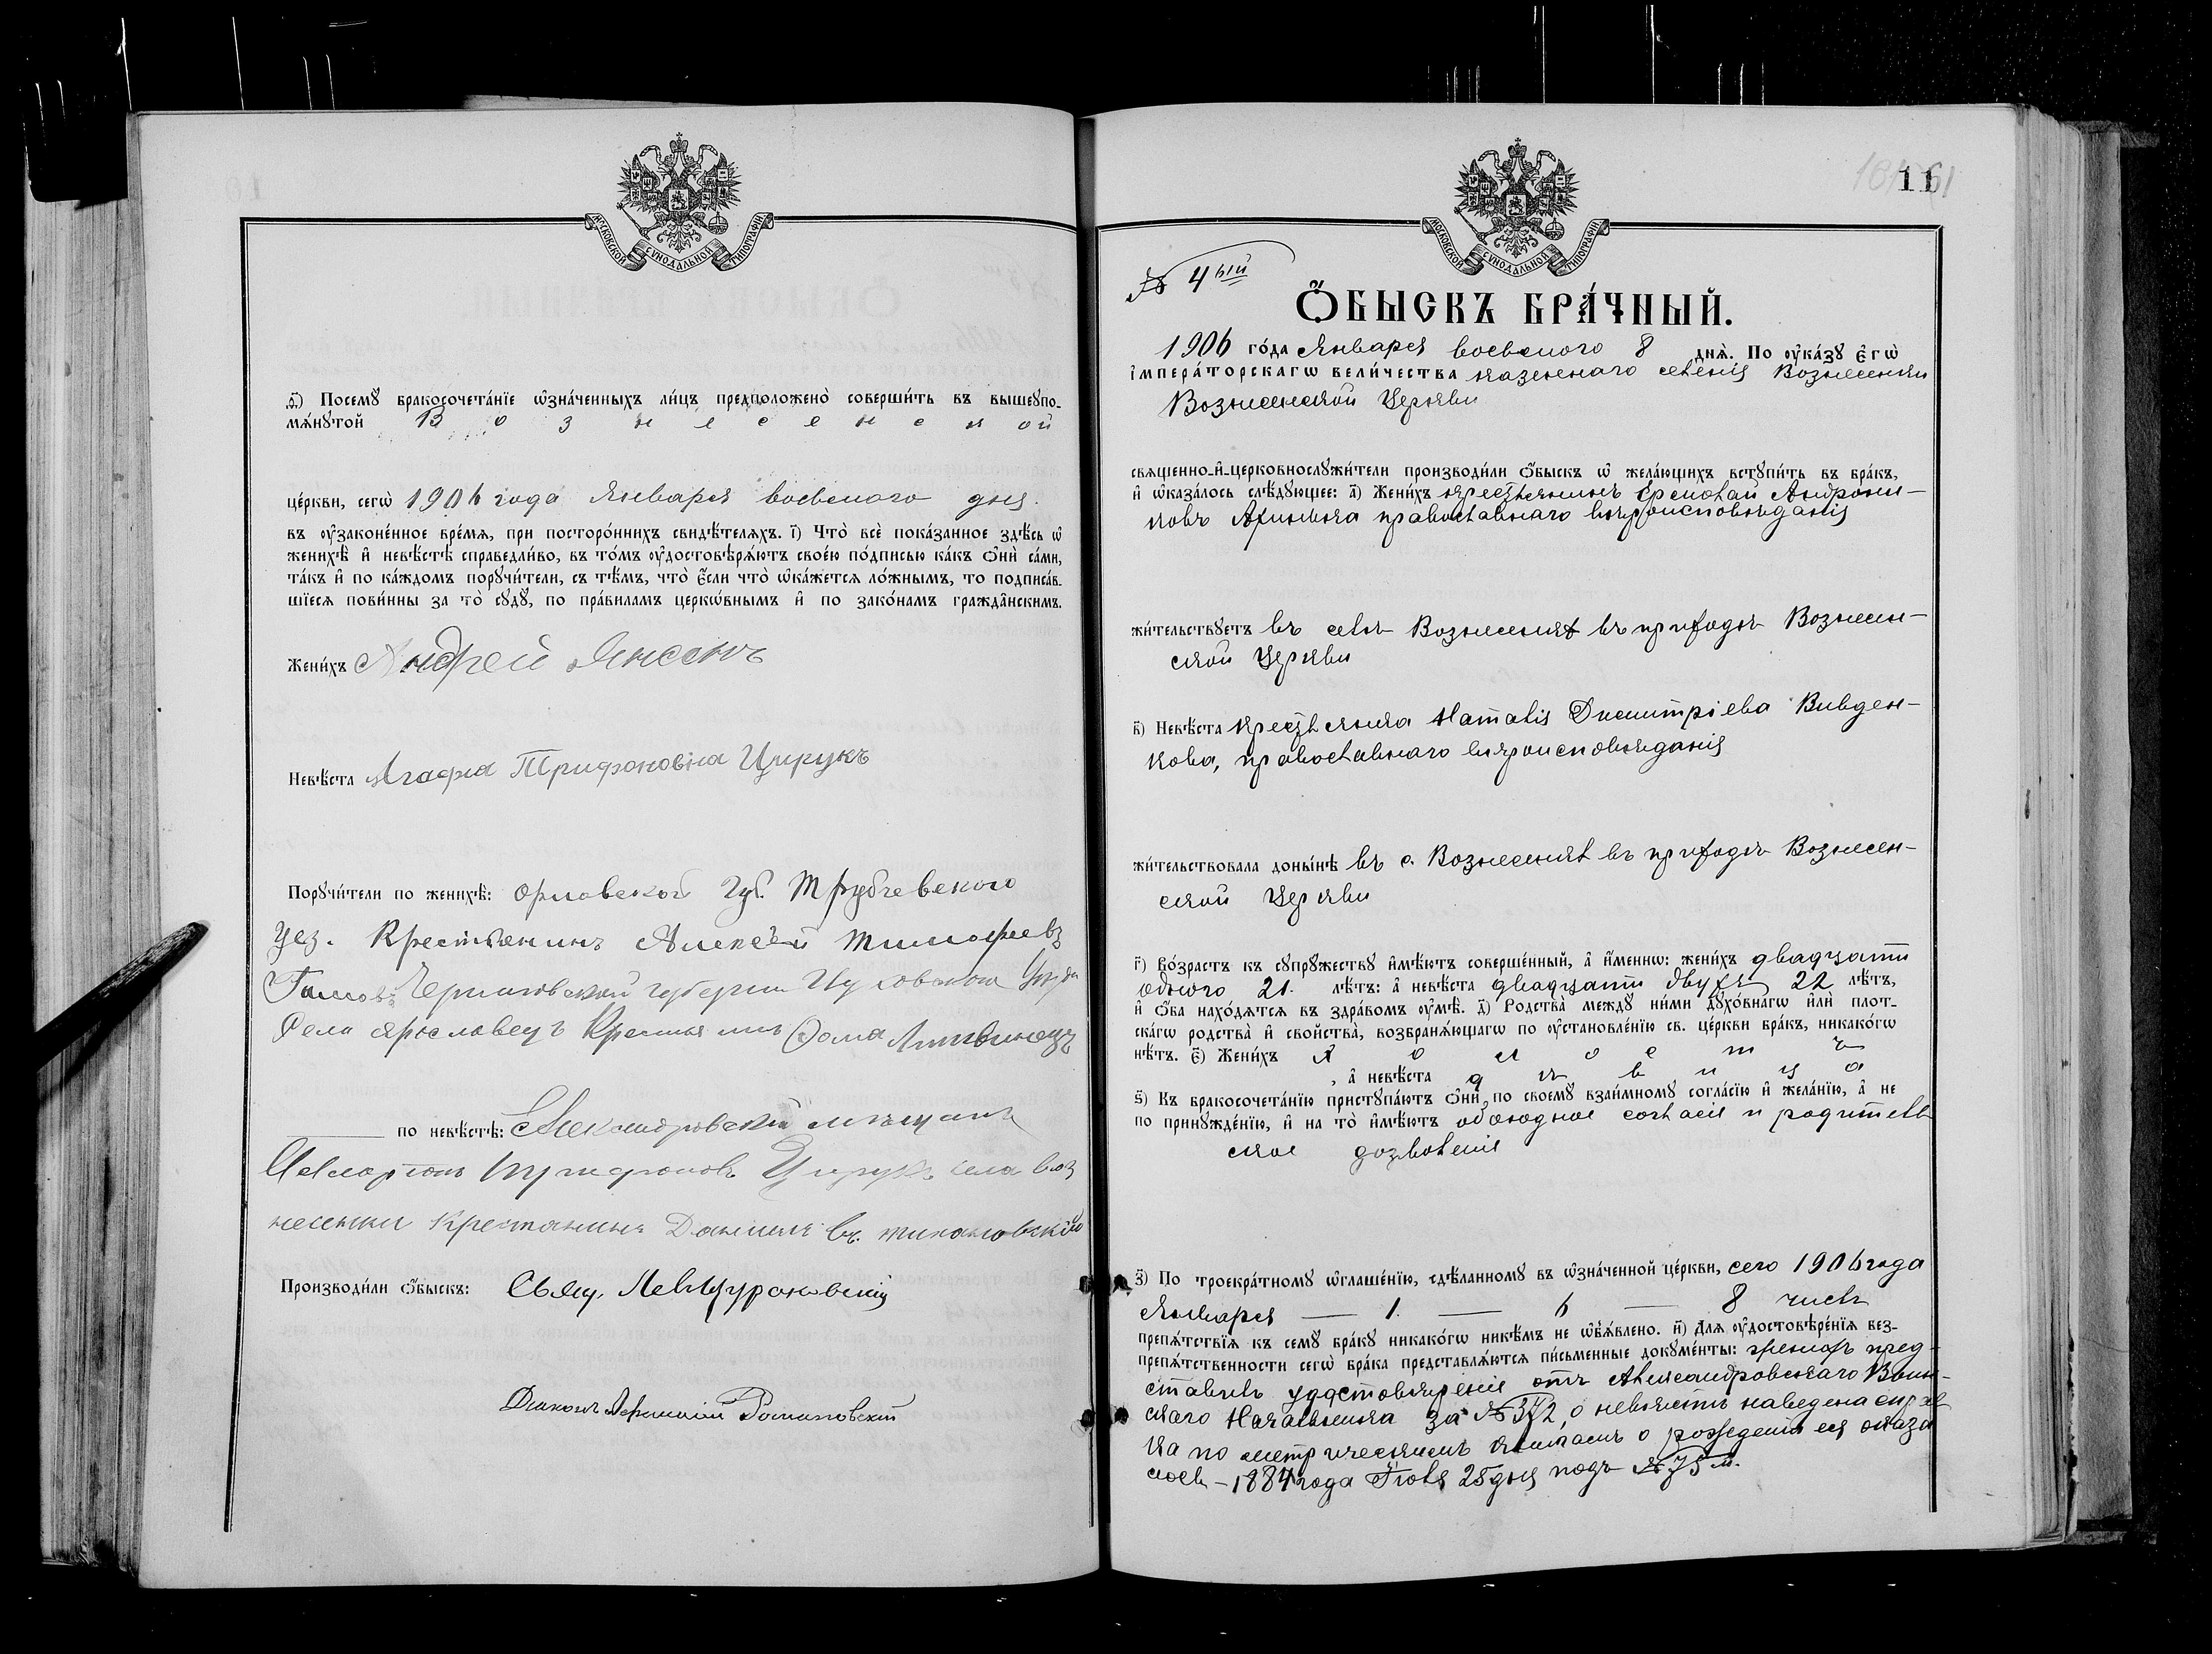 МОСКОВСКОЙ СѴНОДАЛЬНОЙ ТИПОГРАФІИ
ѳ҃) Посемꙋ бракосочета́нїе ѡ҆зна́ченныхъ ли́цъ предположено̀ соверши́ть въ вышеꙋпо-
мѧ́нꙋтой Вознесенской
це́ркви, сегѡ̀ 1906 года Января восьмого дня
въ ᲂу҆зако́ненное вре́мѧ, при посторо́ннихъ свидѣ́телѧхъ. і҃) Что̀ всѐ пока́занное здѣ́сь ѡ҆
женихѣ̀ и҆ невѣ́стѣ справедли́во, въ то́мъ ᲂу҆достовѣрѧ́ютъ свое́ю по́дписью ка́къ ѻ҆нѝ са́ми,
та́къ и҆ по ка́ждомъ порꙋчи́тели, съ тѣ́мъ, что̀ є҆́сли что̀ ѡ҆ка́жетсѧ ло́жнымъ, то подписа́в-
шїесѧ пови́нны за то̀ сꙋдꙋ̀, по пра́виламъ церкѡ́внымъ и҆ по зако́намъ гражда́нскимъ.
Жени́хъ Андрей Янсенъ
Невѣ́ста Агафия Трифоновна Цирукъ
Порꙋчи́тели по женихѣ̀: Орловской Губ. Трубчевского
Уез. Крестьянинъ Алексѣй Тимофеевъ
Черниговской губерни Уезда
Села Ярославецъ Крестьянинъ Фома Литвинецъ
по невѣ́стѣ: Александровский мѣщанъ
Трифоновъ Цирукъ села Воз
несенки Крестянинъ Даниилъ
Производи́ли ѻ҆́быскъ: Свящ. Лев Цурановскій
Диаконъ Романовскій
11
МОСКОВСКОЙ СѴНОДАЛЬНОЙ ТИПОГРАФІИ
№ 4ый
Ѻ҆́БЫСКЪ БРА́ЧНЫЙ.
1906 го́да Января восьмого 8 днѧ̀. По ᲂу҆ка́зꙋ є҆гѡ̀
і҆мпера́торскагѡ вели́чества казеннаго селенія Вознесенки
Вознесенской Церкви
свѧщенно-и҆-церковнослꙋжи́тели производи́ли ѻ҆́быскъ ѡ҆ жела́ющихъ встꙋпи́ть въ бра́къ,
и҆ ѡ҆каза́лось слѣ́дꙋющее: а҃) Жени́хъ крестьянинъ Ермолай Андрони-
ковъ православнаго вѣроисповѣданія
жи́тельствꙋетъ въ селѣ Вознесенкѣ въ приходѣ Вознесен-
ской Церкви
в҃) Невѣ́ста крестьянка Наталія Димитріева Вивден-
кова, православнаго вѣроисповѣданія
жи́тельствовала доны́нѣ въ с. Вознесенкѣ въ приходѣ Вознесен-
ской Церкви
г҃) Во́зрастъ къ сꙋпрꙋжествꙋ и҆мѣ́ютъ соверше́нный, а҆ и҆́меннѡ: жени́хъ двадцати
одного 21. лѣ́тъ: а҆ невѣ́ста двадцати двухъ 22 лѣ́тъ,
и҆ ѻ҆́ба нахо́дѧтсѧ въ здра́вомъ ᲂу҆мѣ̀. д҃) Родства̀ междꙋ ни́ми дꙋхо́внагѡ и҆лѝ плот-
ска́гѡ родства̀ и҆ сво́йства, возбранѧ́ющагѡ по ᲂу҆становле́нїю св. це́ркви бра́къ, никако́гѡ
нѣ́тъ. є҃) Жени́хъ холостъ
, а҆ невѣ́ста дѣвица
ѕ҃) Къ бракосочета́нїю пристꙋпа́ютъ ѻ҆нѝ по своемꙋ̀ взаи́мномꙋ согла́сїю и҆ жела́нїю, а҆ не
по принꙋжде́нїю, и҆ на то̀ и҆мѣ́ютъ обоюдное согласіе и родитель
ское дозволенія
з҃) По троекра́тномꙋ ѡ҆глаше́нїю, сдѣ́ланномꙋ въ ѡ҆зна́ченной це́ркви, сего 1906 года
Января — 1. — 6 — 8 числъ
препѧ́тствїѧ къ семꙋ̀ бра́кꙋ никако́гѡ никѣ́мъ не ѡ҆бъѧ́влено. и҃) Длѧ ᲂу҆достовѣре́нїѧ без-
препѧ́тственности сегѡ̀ бра́ка представлѧ́ютсѧ пи́сьменные докꙋме́нты: женихъ пред-
ставилъ удостовѣреніе отъ Александровскаго Воин-
скаго Начальника за № 372, о невѣстѣ наведена справ
ка по метрическимъ книгамъ о рожденіи ея оказа
лось – 1884 года Іюля 25 дня подъ № 75 м.